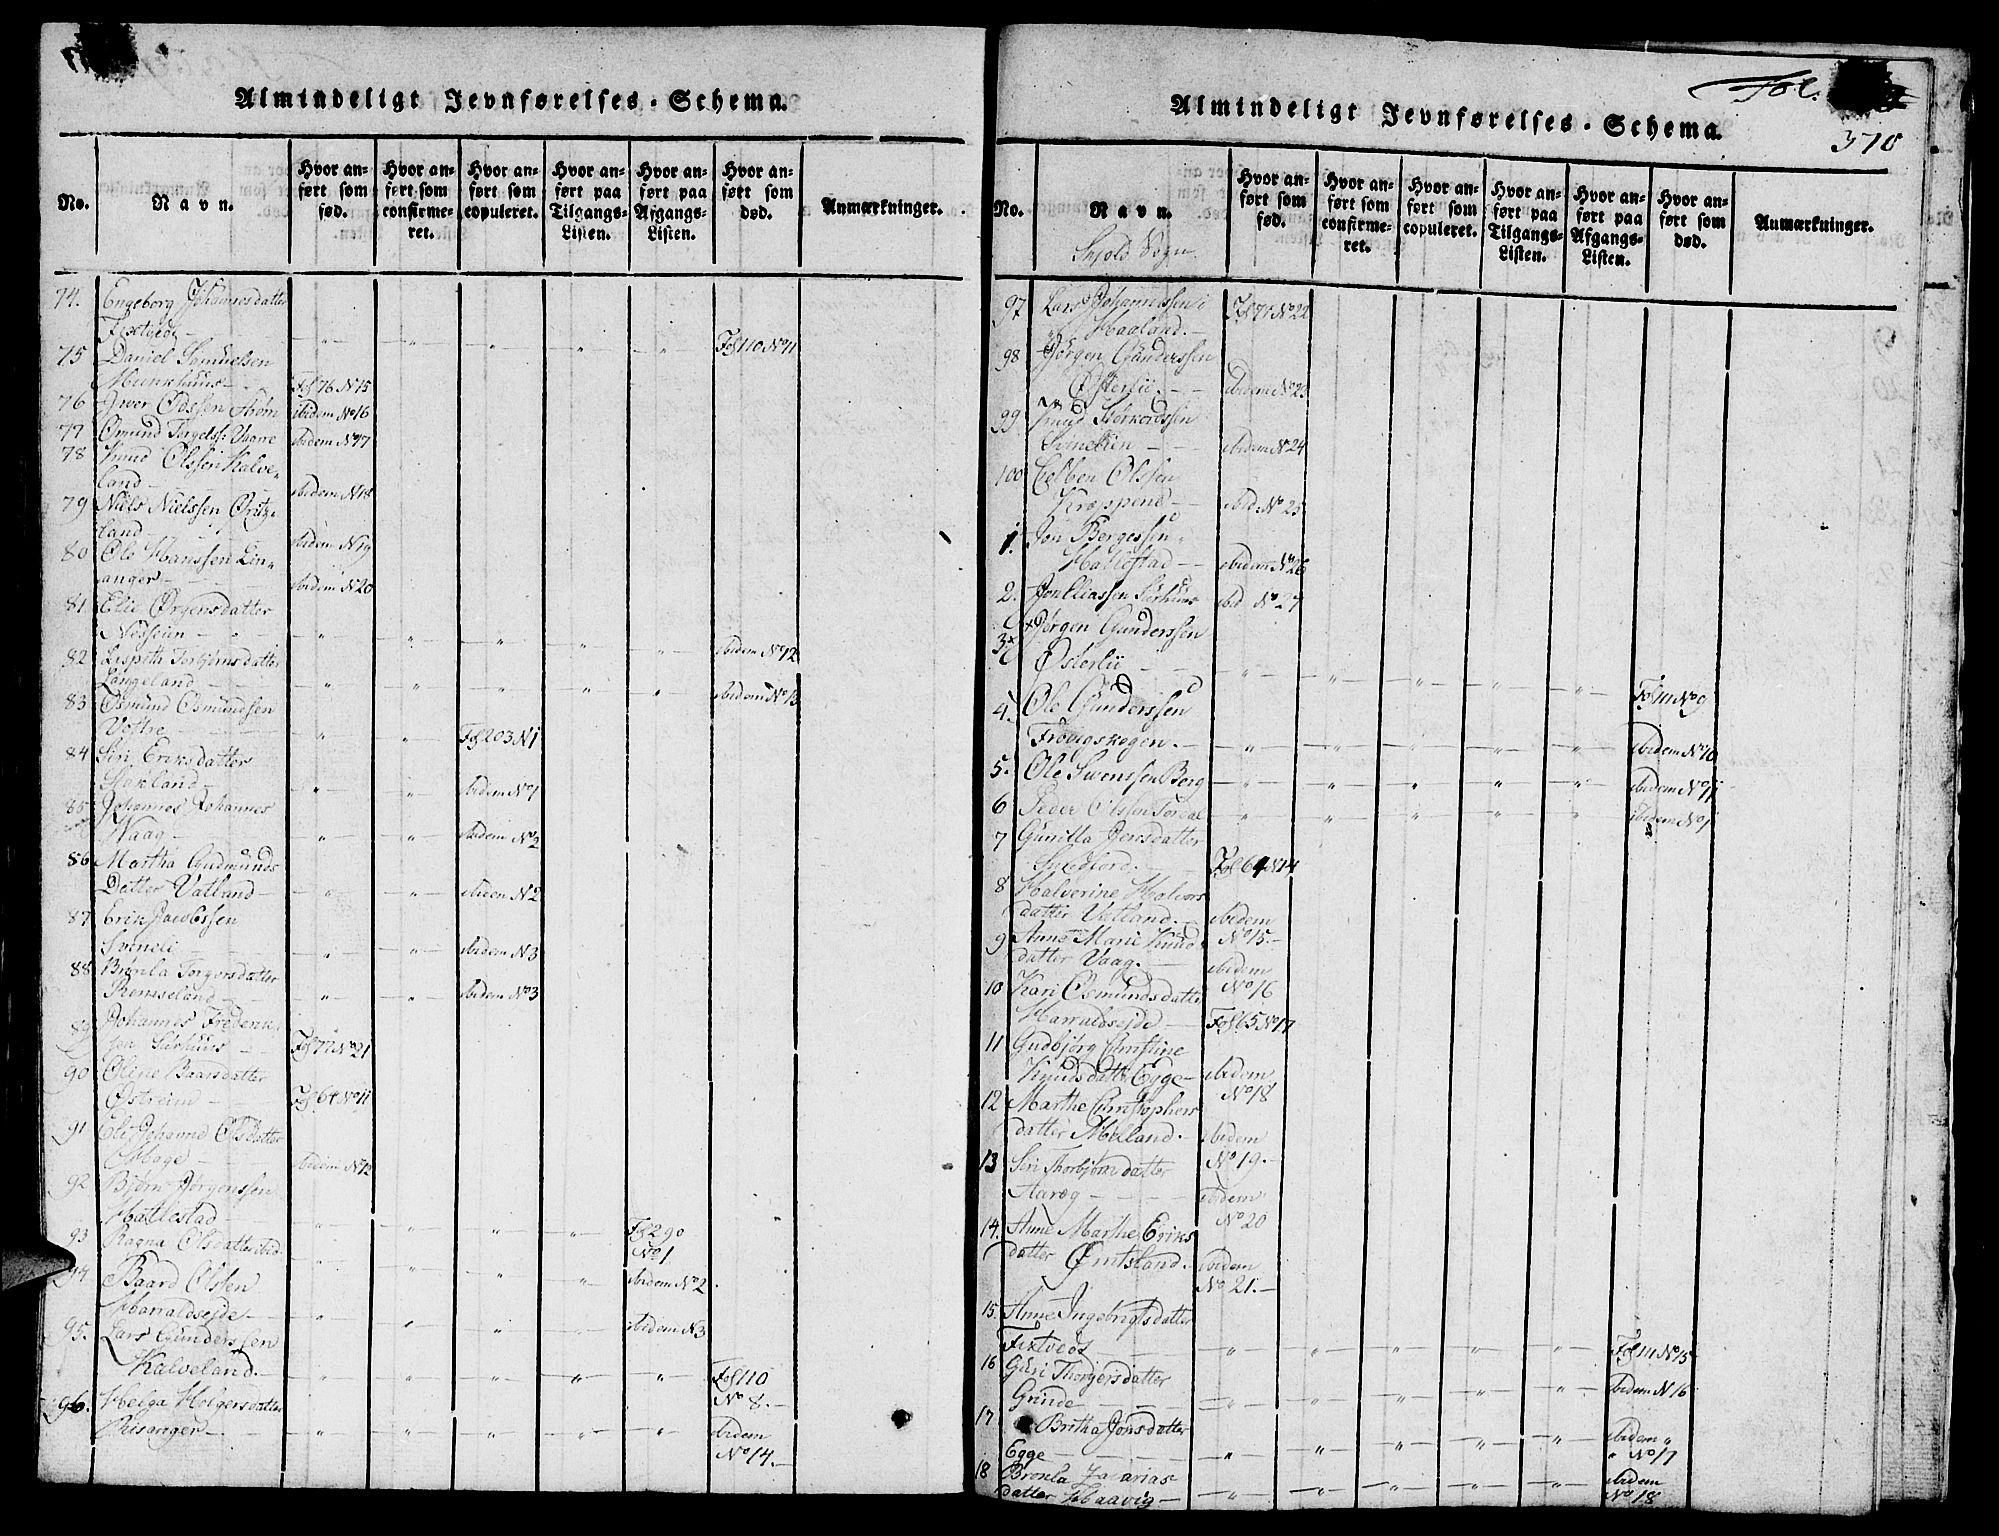 Almindeligt Jevnførelses-Schema.
No.
Navn.
Hvor an-
ført som
fød.
Hvor an-
ført som
confirme-
ret.
Hvor an-
ført som
copuleret.
Hvor an-
ført paa
Tilgangs-
Listen.
Hvor an-
ført paa
Afgangs-
Listen.
Hvor an-
ført som
død.
Anmærkninger.
74. Engeborg Johannesdatter
Fixtvedt Fol 110 No 11
75 Daniel Samuelsen
Munkhuus Fol 76 N 15
76 Iver Odssen ibidem No 16
77 Omund Torgels: Vaare ibidem No 17
78 Knud Olssen Kalve-
land ibidem N 18
79 Niels Nielssen
land ibidem N 19
80 Ole Hanssen Lin-
anger ibidem N 20
81 Elie datter
ibidem No 12
82 Lispeth Torbjørnsdatter
Langeland ibidem No 13
83 Osmund Osmundsen
Vestre Fol 203 N 1
84 Siri Eriksdatter
Stakland ibidem No 1
85 Johannes Johannes
Waag ibidem No 2
86 Martha Gudmunds
Datter Vatland ibidem N 2
87 Erik Jacobssen
Svineli ibidem N 3
88 Brønla Torgersdatter
Romseland ibidem No 3
89 Johannes Frederik
sen Sørhuus Fol 77 No 21
90 Oline Baarsdatter
Østreim Fol 64 No 11
91 Eli Johanna Olsdatter
Hage ibidem No 12
92 Bjørn Jørgenssen
Hallestad Fol 290
No 1
93 Ragna Olsdatter ibid. ibidem No 2
94 Baard Olssen
Harraldseide ibidem N 3
95. Lars Gunderssen
Kalveland. Fol 110
No 8.
96. Helga Holgersdatter
Risanger ibidem
No 14.
Fol.
370
Almindeligt Jevnførelses-Schema.
No.
Navn.
Skjold Sogn.
Hvor an-
ført som
fød.
Hvor an-
ført som
confirme-
ret.
Hvor an-
ført som
copuleret.
Hvor an-
ført paa
Tilgangs-
Listen.
Hvor an-
ført paa
Afgangs-
Listen.
Hvor an-
ført som
død.
Anmærkninger.
97 Lars Johannessen i
Haaland. Fol 77 No 22
98 Jørgen Gunderssen
Østerlie. ibidem No 23
99 Knud Størkerssen
Svinelien ibidem No 24
100 Olssen
Kroppend ibid No 25
1. Jon Bergessen
Hallestad ibidem No 26
2. Jon Eliassen Sørhuus ibid No 27
3 Jørgen Gunderssen
Østerlie Fol 111 No 9
4. Ole Gunderssen
Frovigskogen. ibidem No 10
5. Ole Swenssen Berg ibidem No 11
6 Peder Olssen ibidem No 1
7 Gunilla Jensdatter
Fol 64 No 14
8 Halverine Halvors
datter Vatland. ibidem
No 15.
9 Anne Marie Knuds
datter Vaag. ibidem
No 16
10 Kari Osmundsdatter
Harraldseide Fol 65 No 17
11 Gudbjørg Christine
Knudsdatter Egge ibidem
No 18
12 Marthe Christophers
datter Mølland. ibidem
No 19.
13 Siri Thorbjørnsdatter
Aarøg ibidem
No 20
14. Anne Marthe Eriks
datter Ørntsland. ibidem
No 21.
15. Anne Ingebrigtsdatter
Fixtvedt Fol 111 No 15
16 Guri Thorgersdatter
Grinde ibidem N 16
17 Britha Jonsdatter
Egge ibidem
No 17
18 Brønla Zacarias
datter Haavig ibidem
No 18